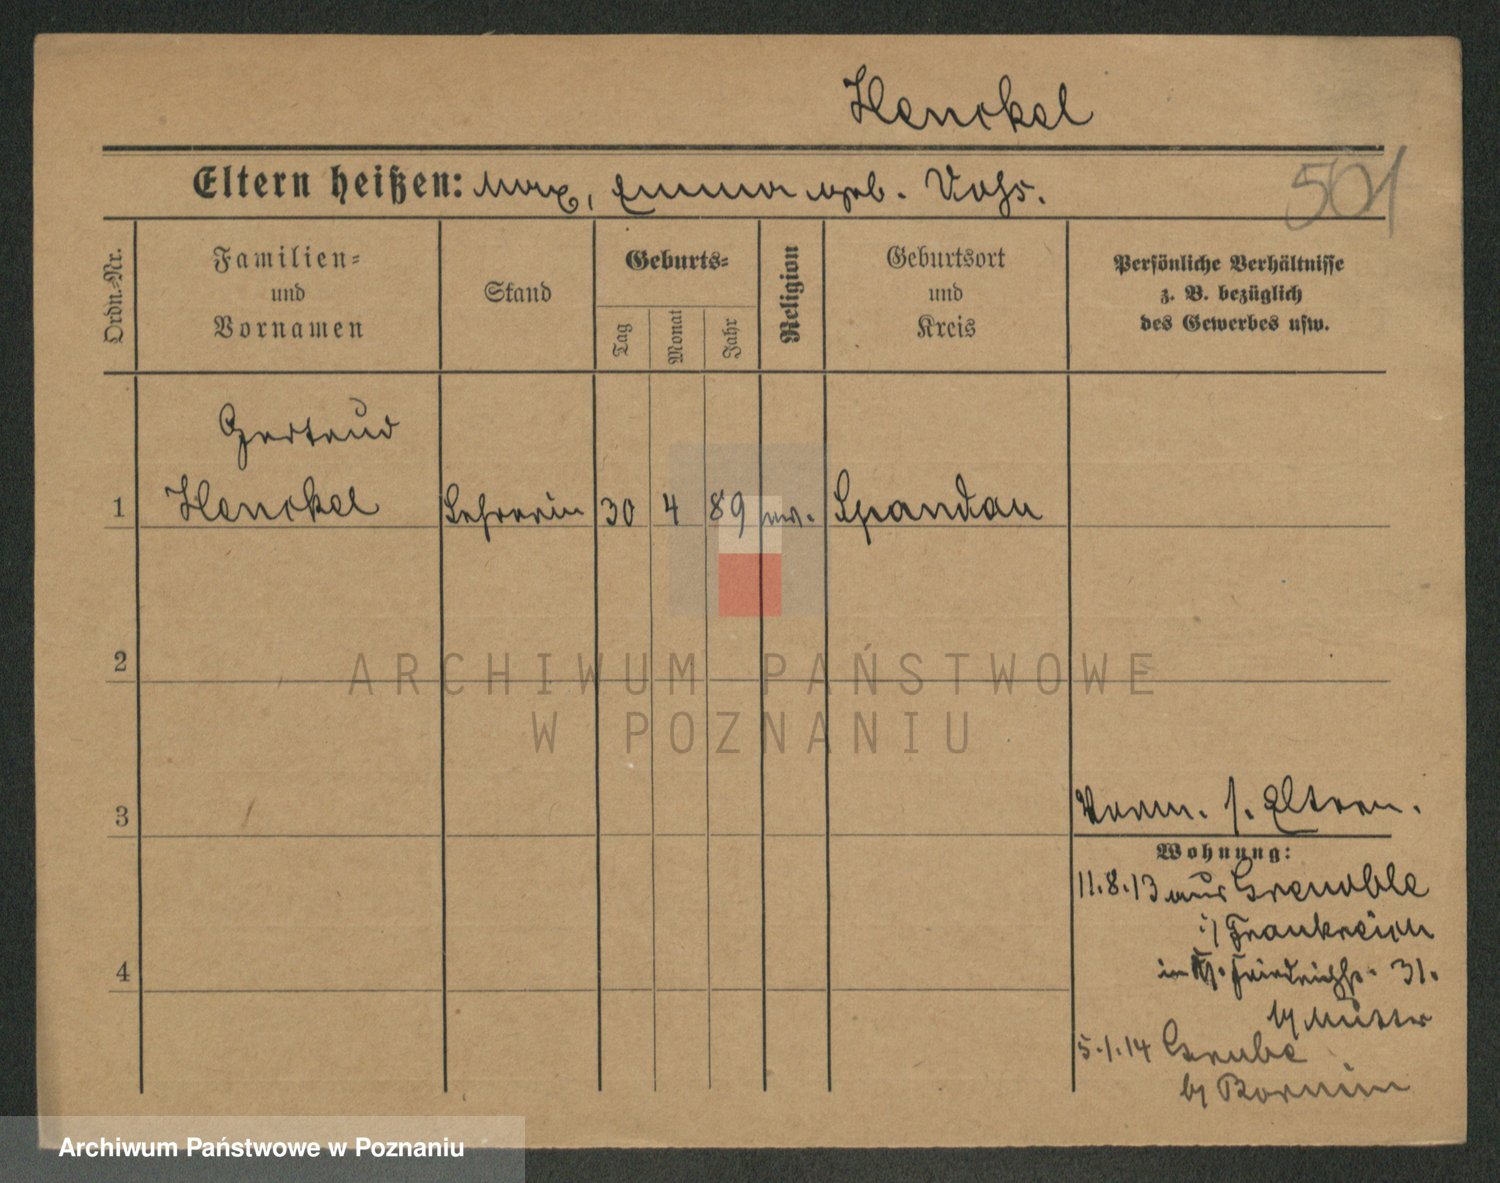 Henckel
501
Eltern heißen: Max, Emma geb. Voss.
Ordn.-Nr.
Familien- und Vornamen
Stand
Geburts-
Tag
Monat
Jahr
Religion
Geburtsort und Kreis
Persönliche Verhältnisse
z. B. bezüglich
des Gewerbes usw.
Gertrud
1 Henckel Lehrerin 30 4 89 ev. Spandau
2
3
4
Verm. s. Eltern.
Wohnung:
11.8.13 aus Grenoble
i/ Frankreich
in Friedrichstr. 31.
b/ Mutter
5.1.14 Grube
b/ Bornim
ARCHIWUM PAŃSTWOWE
W POZNANIU
Archiwum Państwowe w Poznaniu